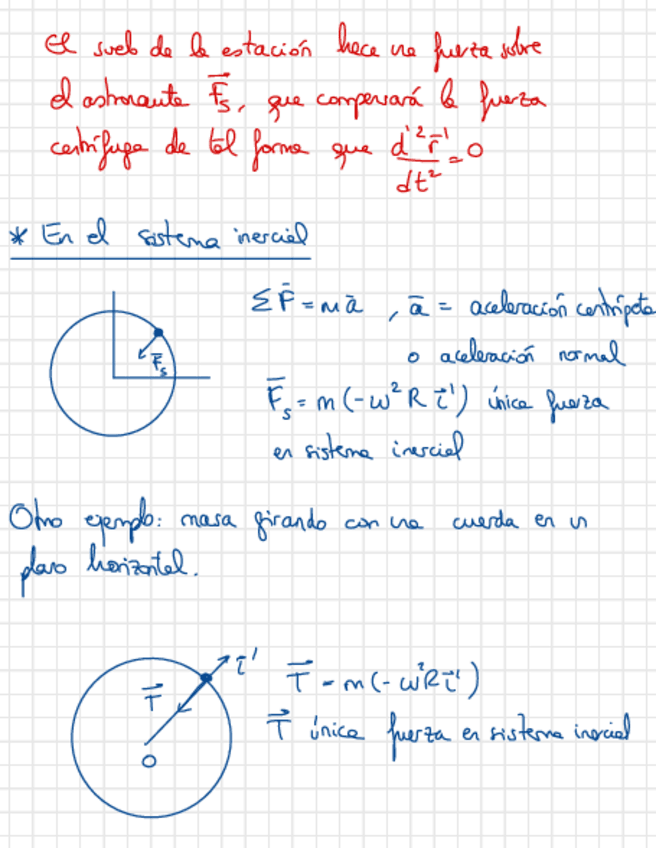 El suelo de la estación hace una fuerza sobre
el astronauta F⃗s, que compensará la fuerza
centrífuga de tal forma que d'²r̄'/dt² = 0
* En el sistema inercial
ΣF̄ = mā , ā = aceleración centrípeta
o aceleración normal
F̄s
F̄s = m(-ω²R i⃗') única fuerza
en sistema inercial
Otro ejemplo: masa girando con una cuerda en un
plano horizontal.
ī'
T⃗
O
T⃗ = m(-ω²R i⃗')
T⃗ única fuerza en sistema inercial